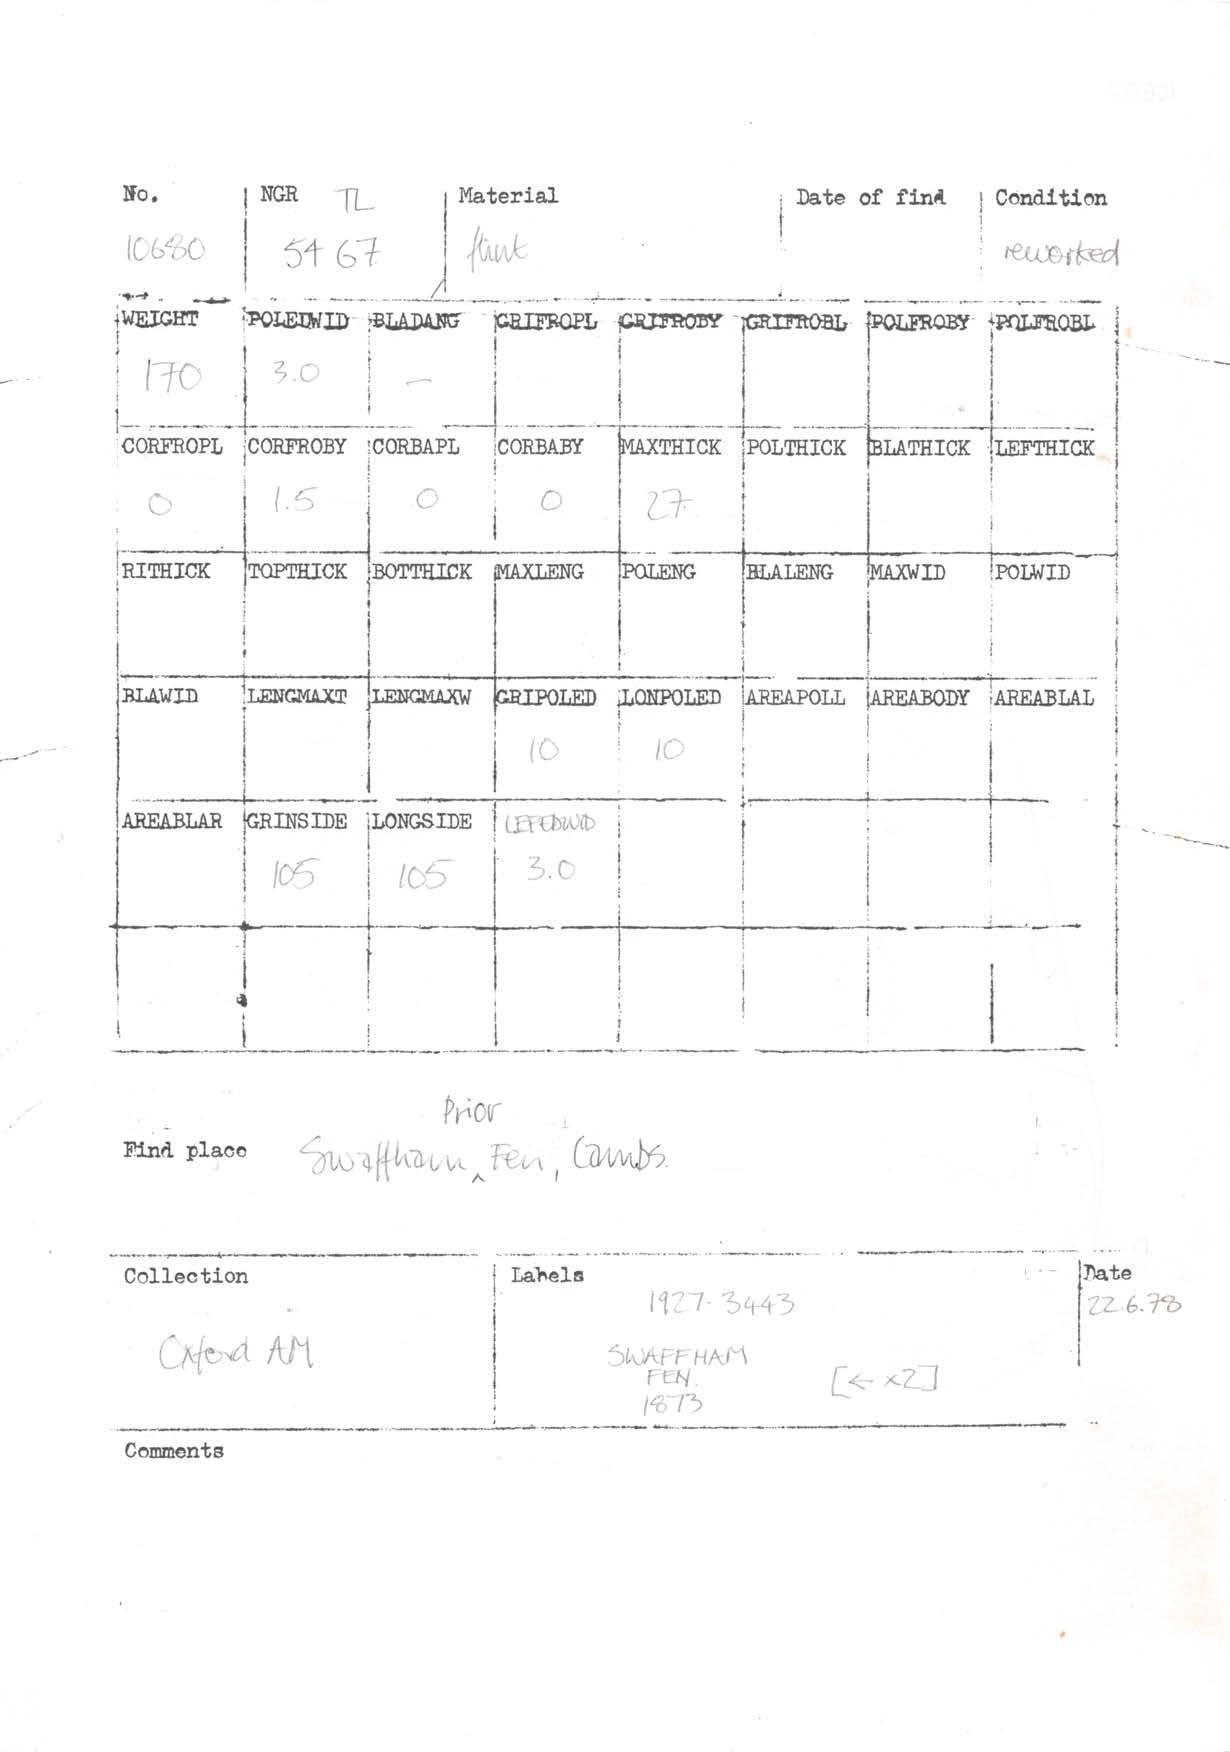 No. NGR TL Material Date of find Condition
10680 54 67 flint reworked
WEIGHT POLEDWID BLADANG GRIFROPL GRIFROBY GRIFROBL POLFROBY POLFROBL
170 3.0 —
CORFROPL CORFROBY CORBAPL CORBABY MAXTHICK POLTHICK BLATHICK LEFTHICK
0 1.5 0 0 27
RITHICK TOPTHICK BOTTHICK MAXLENG POLENG BLALENG MAXWID POLWID
BLAWID LENGMAXT LENGMAXW GRIPOLED LONPOLED AREAPOLL AREABODY AREABLAL
10 10
AREABLAR GRINSIDE LONGSIDE LEFEDWID
105 105 3.0
Prior
Find place Swaffham ^ Fen, Cambs.
Collection Labels Date
1927.3443 22.6.78
Oxford AM SWAFFHAM
FEN.
1873 [← x2]
Comments